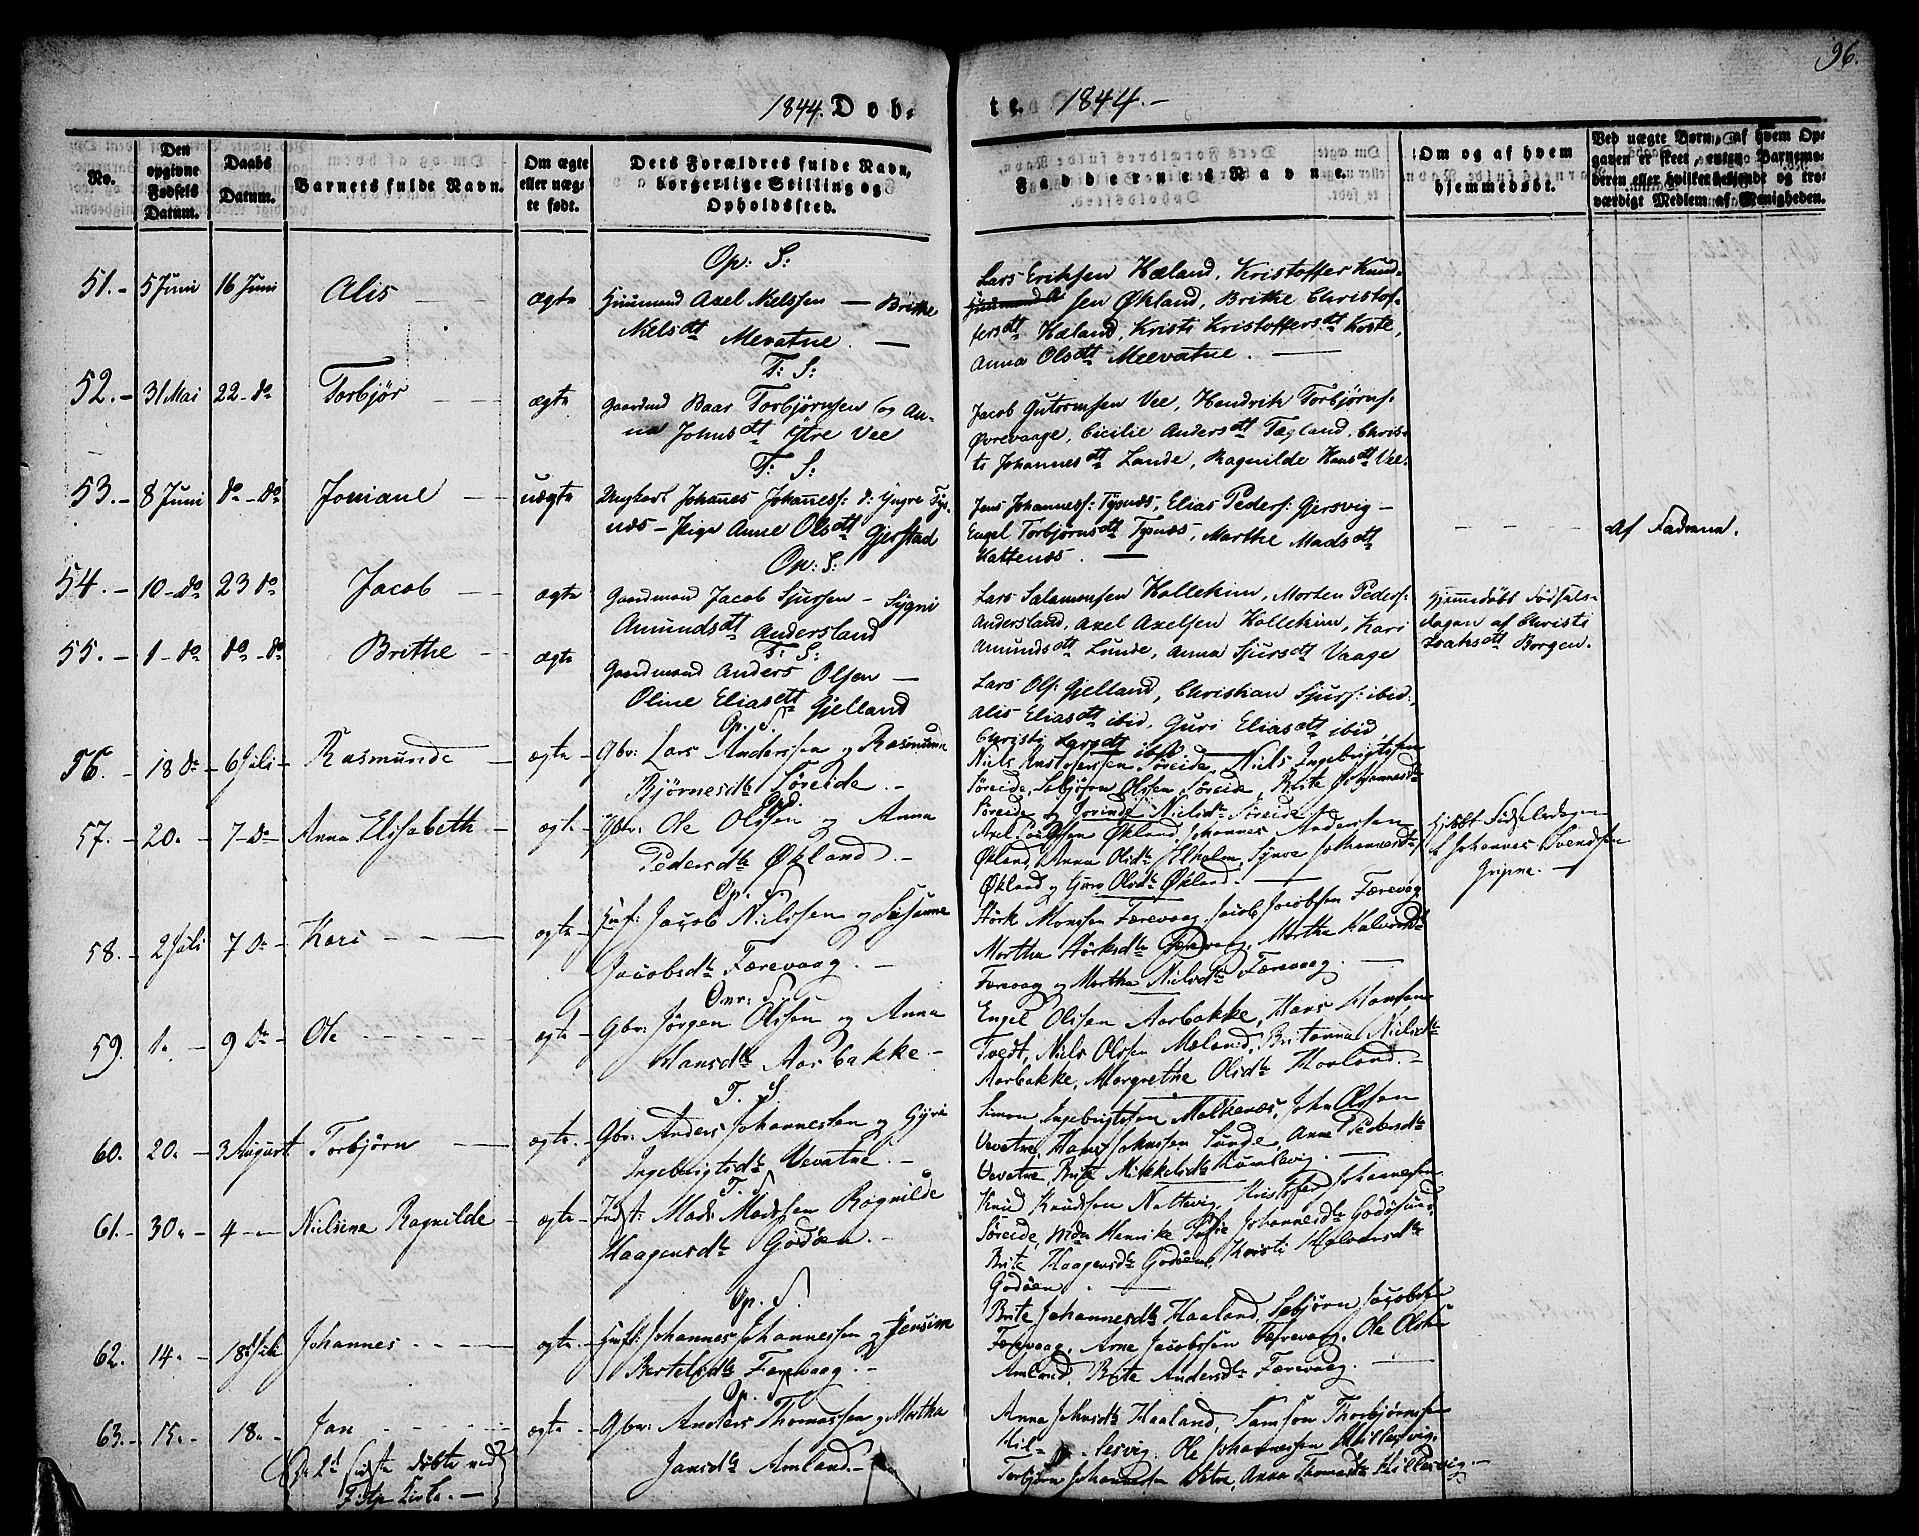 96.
1844. Døb-
te. 1844.-
No.
Den opgivne Fødsels Datum.
Daabs Datum.
Barnets fulde Navn.
Om ægte eller uægte født.
Dets Forældres fulde Navn, borgerlige Stilling og Opholdssted.
Faddernes Navne.
Om og af hvem hjemmedøbt.
Ved uægte Børn, af hvem Opgaven er skeet, enten Barnemoderen eller hvilket bekjendt og troværdigt Medlem af Menigheden.
Op: S:
51. - 5 Juni 16 Juni Alis - - ægte Huusmand Axel Nielssen — Brithe
Nielsdtt Mevatne. —
Lars Eriksen Hæland, Kristoffer Knud-
sen Økland, Brithe Christof-
fersdtt Hæland, Kristi Kristoffersdtt Koste,
Anna Olsdtt Meevatne. —
T: S:
52. - 31 Mai 22 - do Torbjør - - ægte Gaardmd Baar Torbjørnsen og An-
na Johnsdtt Ytre Vee
Jacob Gutormsen Vee, Hendrik Torbjørns:
Øvrevaage, Cicilie Andersdtt Tægland, Chris-
ti Johannesdtt Lande, Ragnilde Hansdtt Vee.
T: S:
53. - 8 Juni do - do Joniane - - uægte Ungkarl Johanes Johaness: d: Yngre Tys-
næs - Pige Anne Olsdtt Gjerstad
Jens Johanness: Tysnæs, Elias Peders: Gjersvig -
Engel Torbjørnsdtt Tysnæs, Marthe Madsdtt
Hattenæs. —
Af Faderen.
Op: S:
54. - 10 - do 23 do Jacob - - ægte Gaardmand Jacob Sjursen - Sygni
Amundsdtt Andersland
Lars Salamonsen Kolleheim, Morten Peders:
Andersland, Axel Axelsen Kolleheim, Kari
Amundsdtt Lunde, Anna Sjursdtt Vaage
Hjemedøbt Fødsels-
dagen af Christi
Isaksdtt Borgen.
T: S:
55. - 1 - do do - do Brithe - ægte Gaardmand Anders Olsen —
Oline Eliasdtt Gjelland
Lars Ols: Gjelland, Christian Sjurs: ibid.
Alis Eliasdtt ibid, Guri Eliasdtt ibid
Christi Larsdtt ibid
Op. S.
56. - 18 do - 6 Juli - Rasmunde - ægte - Gbr: Lars Anderssen og Rasmunda
Bjørnesdtr Søreide. -
Niels Kristofersen Søreide, Niels Ingebrigtssen
Søreide, Sebjørn Olssen Søreide, Brite Johannesdtr
Søreide og Jorinde Nielsdtr Søreide
Opd.
57. - 20. - 7 - do - Anna Elisabeth - ægte - Gbr: Ole Olssen og Anna
Pedersdtr Økland. -
Axel Poulssen Økland, Johannes Andersen
Økland, Anna Olsdtr Ølholm, Synva Johannesdtr
Økland og Guro Olsdtr Økland. —
Hjdøbt Fødselsdagen
af Johannes Svendsen
Gripne. -
Op. S.
58. - 2 Juli - 7 do - Kari - - - ægte - Huf: Jacob Nilssen og Susanne
Jacobsdtr Færevaag. -
Størk Monssen Færevaag, Jacob Jacobsen Færevaag
Martha Størksdtr Færevaag, Martha Halvorsdtr
Færevaag og Martha Nielsdtr Færevaag. —
Onr: S.
59. do - 9 do - Ole - - - ægte - Gbr: Jørgen Olssen og Anna
Hansdtr Aarbakke. -
Engel Olssen Aarbakke, Hans Hansen
Tvedt, Niels Olssen Mæland, Britanna Nielsdtr
Aarbakke, Margrethe Olsdtr Haaland. -
T. S
60. 20. - 3 August Torbjørn - ægte. - Gbr: Anders Johannessen og Gyri
Ingebrigtsdtr Vevatne. -
Simon Ingebrigtsen Malkenæs, John Olssen
Vevatne, Hans Johnssen Lunde, Anne Pedersdtr
Vevatne, Brite Mikkelsdtr Humlevig. -
T. S
61. - 30. - 4 - Nielsine Ragnilde - ægte - Indst: Mads Madssen Ragnilde
Haagensdtr Godøen. -
Knud Knudssen Nattevig, Kristofer Johannessen
Søreide, Mdm Henrike Sofie Johannesdtr Godøsund,
Brite Haagensdtr Godøen, Kristi Halvorsdtr
Godøen. —
Op. S.
62. 14. - 18 Juli Johannes - - - ægte. - Huf: Johannes Johannessen og Jensine
Bertelsdtr Færevaag. -
Brite Johannesdtr Haaland, Sebjørn Jacobsen
Færevaag, Arne Jacobssen Færevaag, Ole Olssen
Amland, Brite Andersdtr Færevaag. —
Op. S.
63. - 15. - 18. - Jan - - - ægte - Gbr: Anders Thomassen og Martha
Jansdtr Amland. -
Anna Johnsdtr Haaland, Samson Thorbjørnsen
Hil- lesvig. Ole Johannessen Hillesvig,
Torbjørn Johannessen, Anna Thomasdtr Hillesvig. -
(De 2d sidste døbte ved